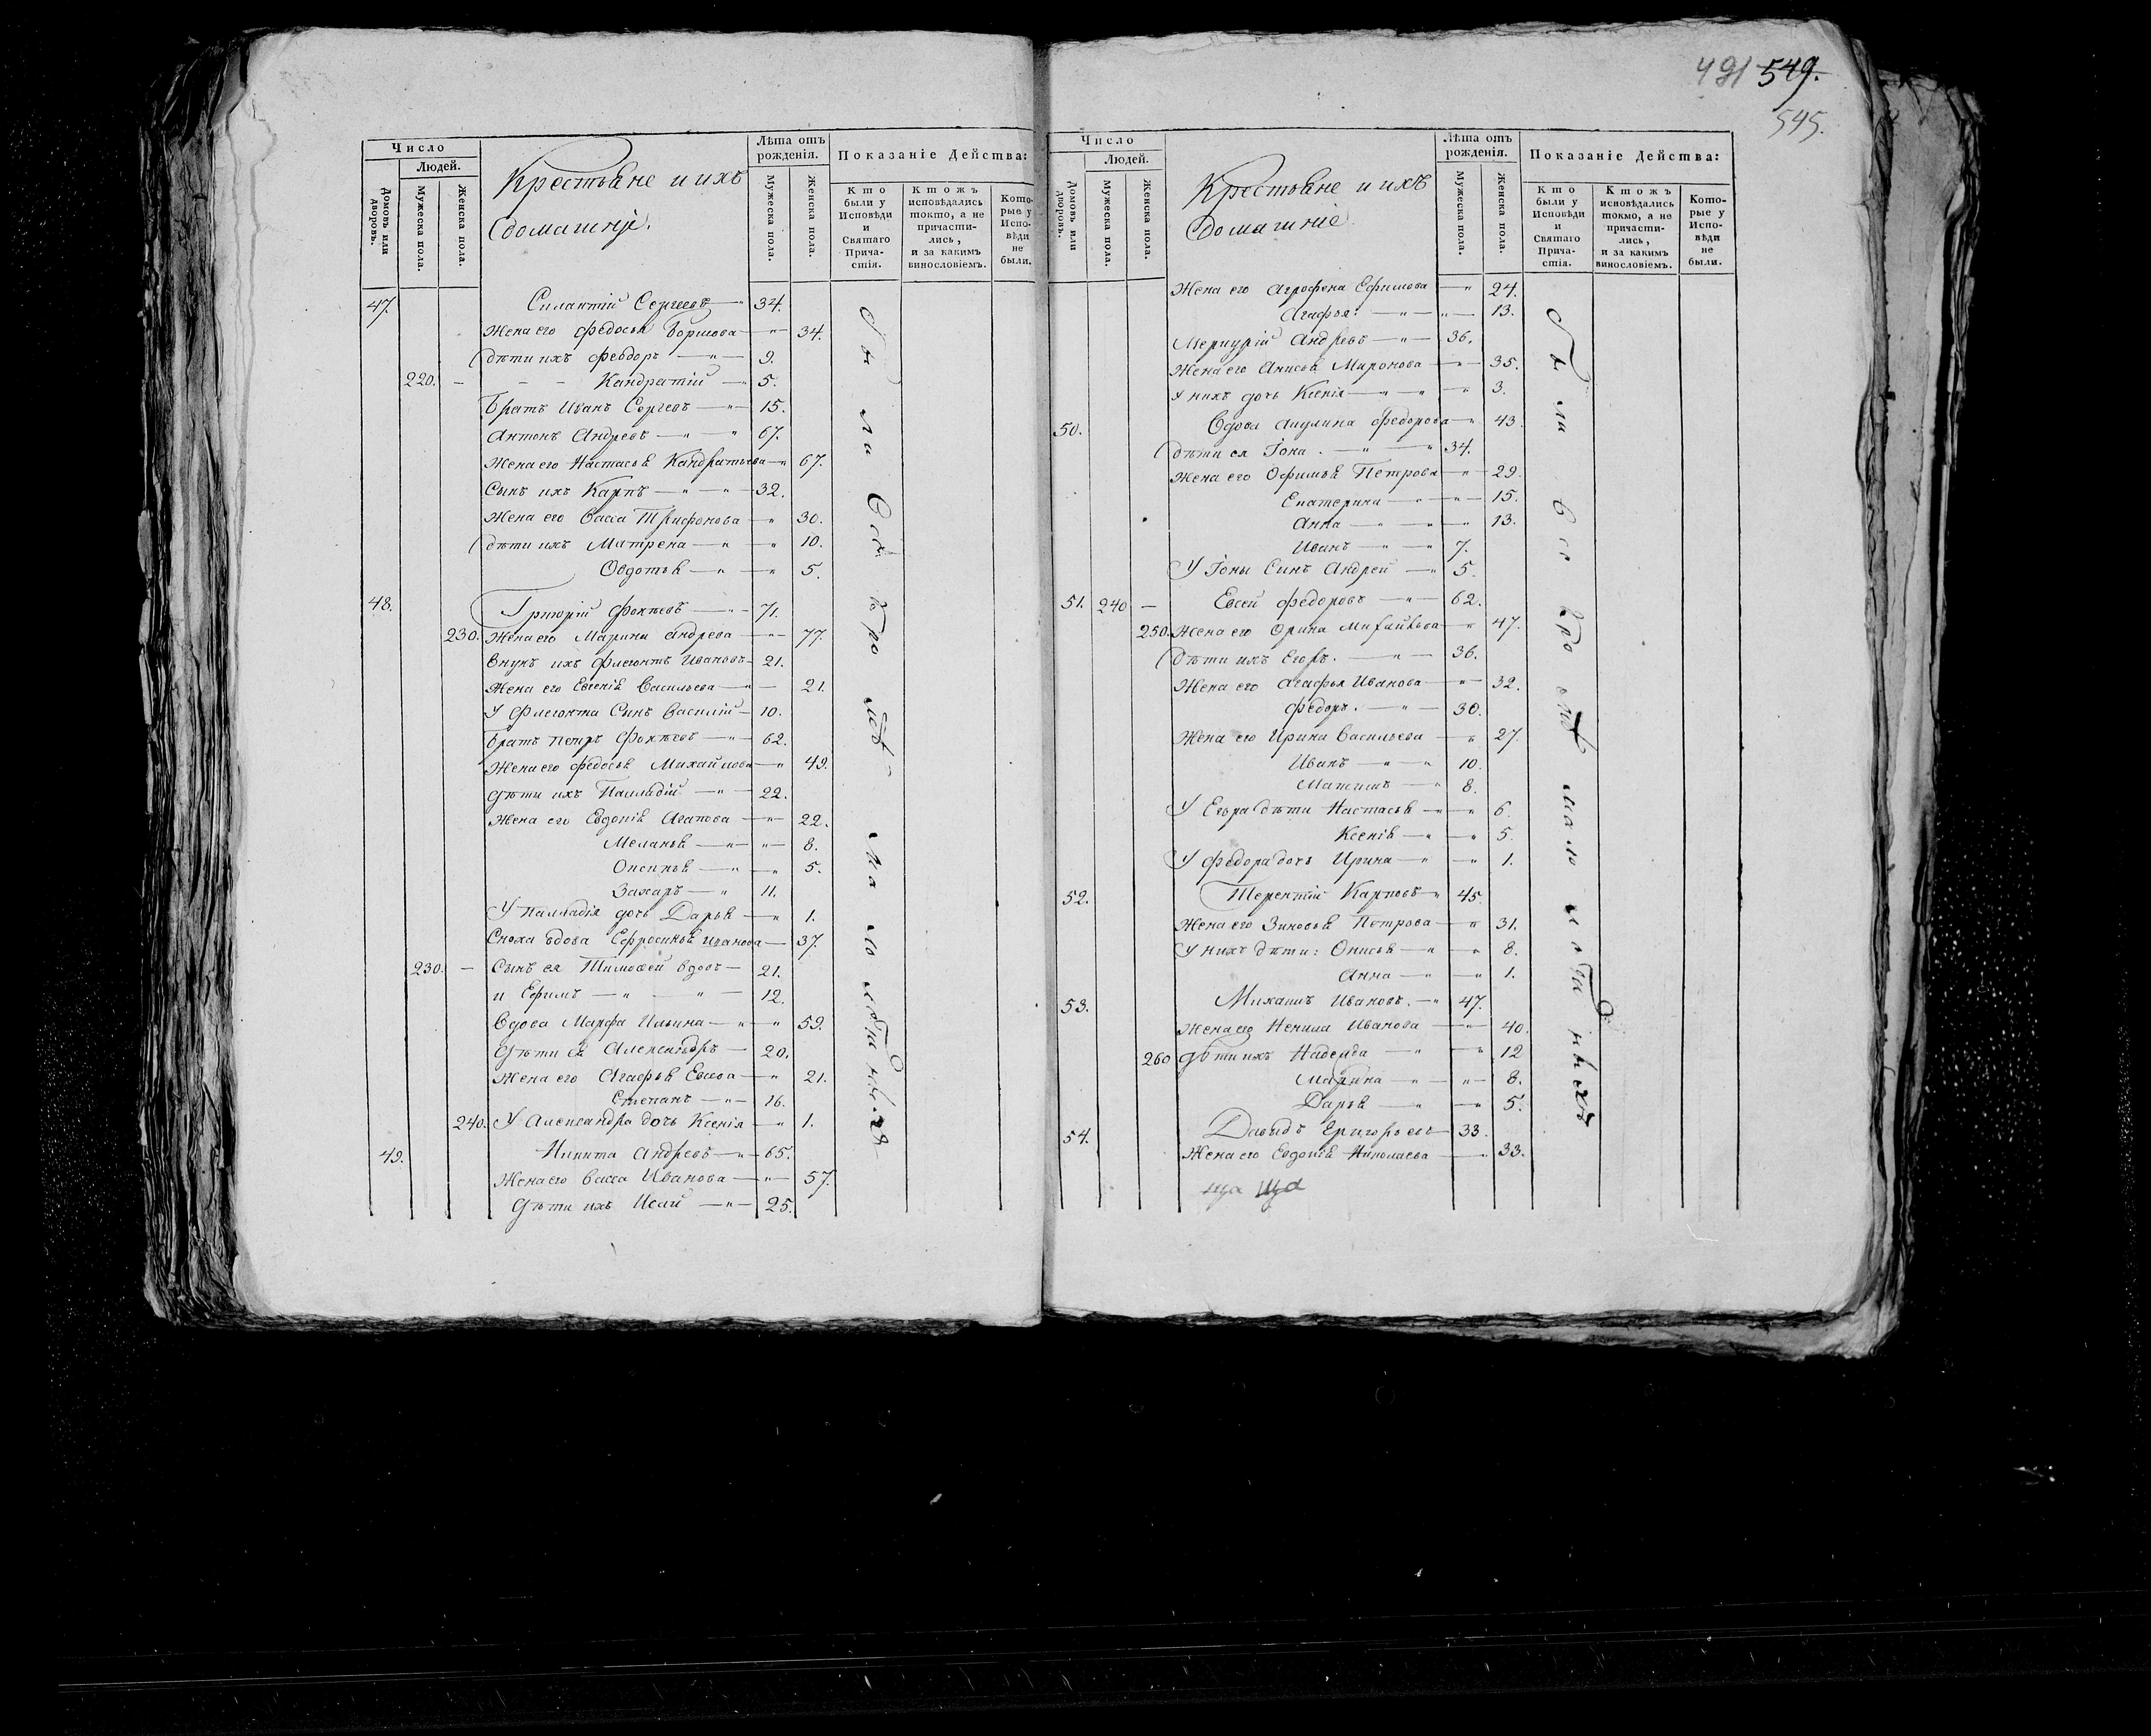 491 549.
545.
Число
Людей.
Домовъ или дворовъ.
Мужеска пола.
Женска пола.
Крестьяне и ихъ
домашніе.
Лѣта отъ рожденія.
Мужеска пола.
Женска пола.
Показаніе Действа:
Кто были у Исповѣди и Святаго Прича-стія.
Ктожъ исповѣдались токмо, а не причасти-лись, и за какимъ винословіемъ.
Кото-рые у Испо-вѣди не были.
47. Силантій Сергеевъ — " 34.
Жена его Федосья — " — 34.
Дѣти ихъ Феодоръ — " — 9.
220. — — — Кандратій — " 5.
Братъ Иванъ Сергеевъ — " — 15.
Антонъ Андреевъ — " — " 67.
Жена его Настасья Кандратьева — " 67.
Сынъ ихъ Карпъ — " — " — 32.
Жена его Васса Трифонова — " 30.
Дѣти ихъ Матрена — " — " 10.
Овдотья — " — " 5.
48. Григорій Фокѣевъ — " — 71.
230. Жена его Марина Андреева — " — 77.
Внукъ ихъ Флегонтъ Ивановъ — 21.
Жена его Евгенія Васильева — " — 21.
У Флегонта Сынъ Василій — 10.
Братъ Петръ Фокѣевъ — " — 62.
Жена его Федосья Михайлова — " 49.
Дѣти ихъ Палладій — " — 22.
Жена его Евдокія Агапова — " — 22.
Меланья — " — " — 8.
Оксинья — " — " 5.
Захаръ — " 11.
У Палладія дочь Дарья — " 1.
Сноха вдова Ефросинья Иванова — 37.
230. — Сынъ ея Тимофей вдовъ — 21.
и Ефимъ — " — " — 12.
Вдова Марфа Ильина — " — " 59.
Дѣти ея Александръ — 20.
Жена его Агафья Евсева — " 21.
Степанъ — " — 16.
240. У Александра дочь Ксенія — " 1.
49. Никита Андреевъ — " — 65.
Жена его Васса Иванова — " — 57.
Дѣти ихъ Исай — " — 25.
Были Все кромѣ малолѣтныхъ
Число
Людей.
Домовъ или дворовъ.
Мужеска пола.
Женска пола.
Крестьяне и ихъ
домашніе
Лѣта отъ рожденія.
Мужеска пола.
Женска пола.
Показаніе Действа:
Кто были у Исповѣди и Святаго Прича-стія.
Ктожъ исповѣдались токмо, а не причасти-лись, и за какимъ винословіемъ.
Кото-рые у Испо-вѣди не были.
Жена его Агрофена Ефимова — " 24.
Агафья. — " — " — 13.
Меркурій Андреевъ — " — 36.
Жена его Анисья Миронова — " — 35.
У нихъ дочь Ксенія — " — " — " 3.
50. Вдова Акулина Федорова — " 43
Дѣти ея Іона. — " — " 34.
Жена его Офимья Петрова — " 29.
Екатерина — " — " — 15.
Анна — " — " — " 13.
Иванъ — " — " 7.
У Іоны Сынъ Андрей — " 5.
51. 240 — Евсей Федоровъ — " — 62.
250. Жена его Орина Михайлова — " 47.
Дѣти ихъ Егоръ. — " — 36.
Жена его Агафья Иванова — " — 32.
Федоръ. — " — 30.
Жена его Ирина Васильева — " 27.
Иванъ — " — " 10.
Максимъ — " 8.
У Егора дѣти Настасья — " — " 6.
Ксенія — " — " 5.
У Федора дочь Ирина — " — " 1.
52. Терентій Карповъ — " 45.
Жена его Зиновья Петрова — " 31.
У нихъ дѣти: Онисья — " — " 8.
Анна — " — " 1.
53. Михаилъ Ивановъ. — " 47.
Жена его Ненила Иванова — " — 40.
260 Дѣти ихъ Надежда — " — " 12
Марина — " — " — 8.
Дарья — " — " 5.
54. Давыдъ Григорьевъ — 33.
Жена его Евдокія Николаева — " 33.
Были Все кромѣ малолѣтныхъ